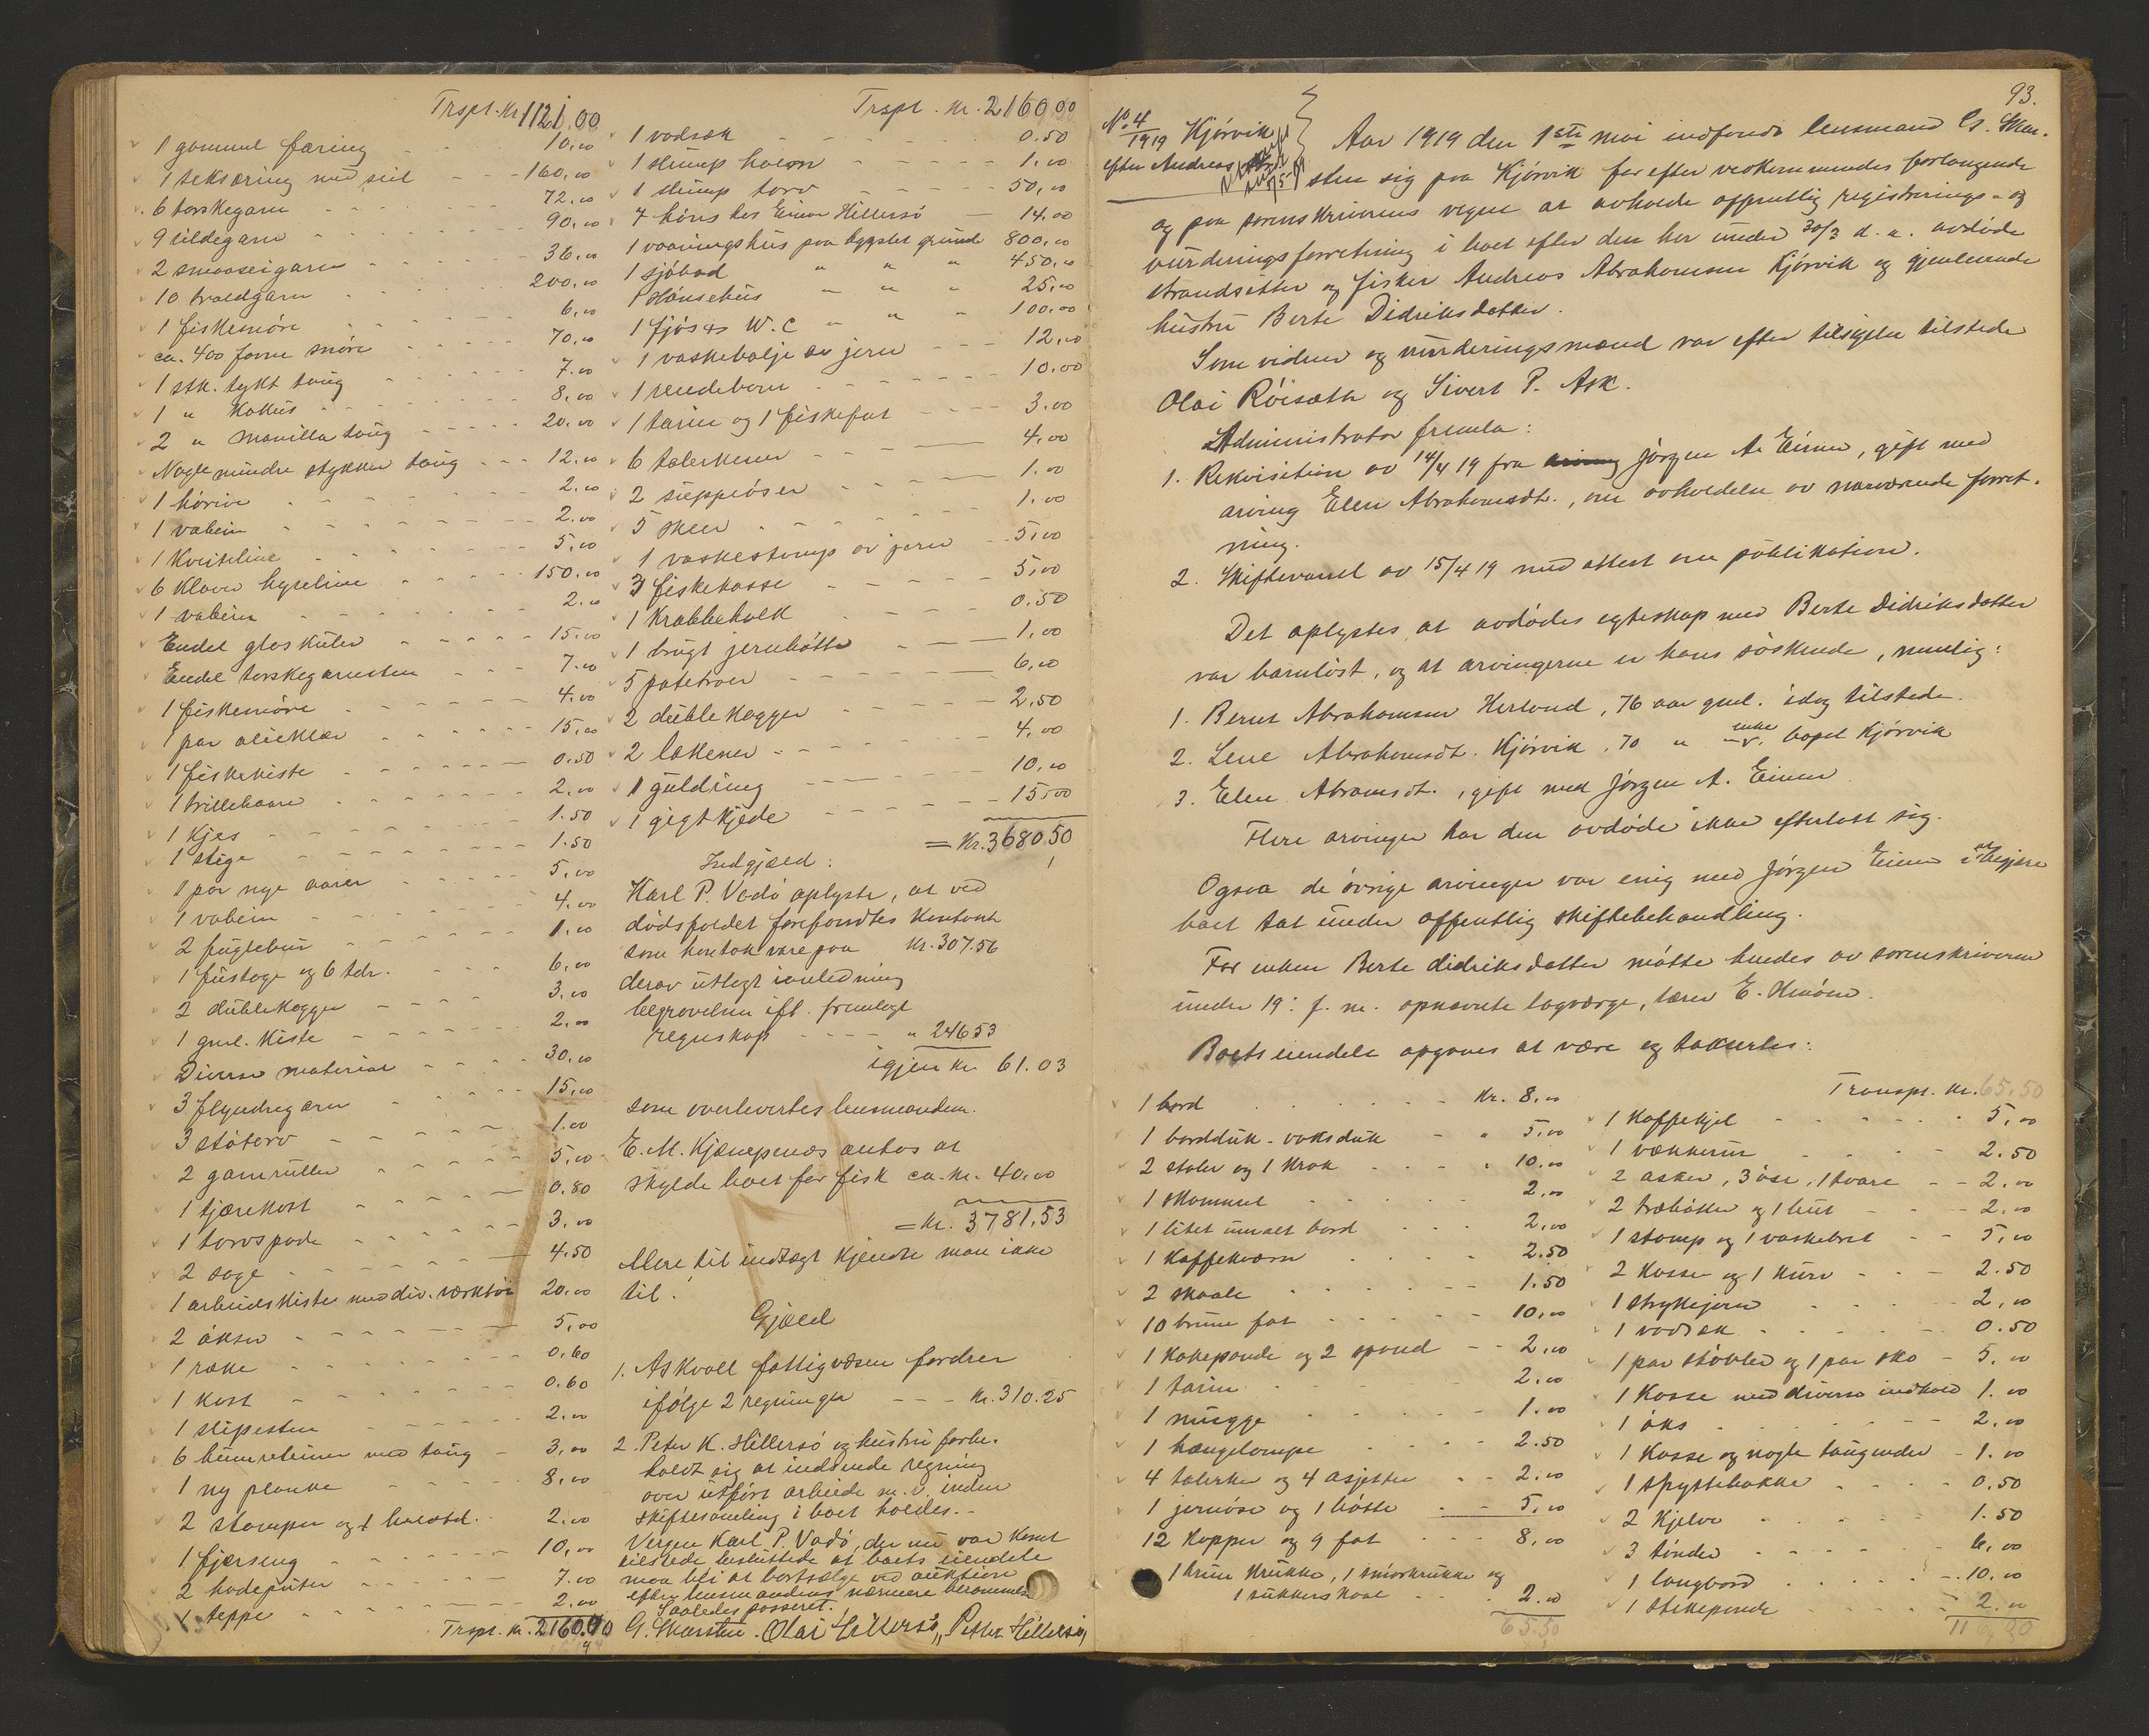 Trspt. Kr. 1121.00
1 gammel færing - - - 10.00
1 seksæring med seil - - - 160.00
6 torskegarn - - - 72.00
9 sildegarn - - - 90.00
2 smaaseigarn - - - 36.00
10 troldgarn - - - 200.00
1 fiskesnöre - - - 6.00
ca. 400 favne snöre - - - 70.00
1 stk. tykt taug - - - 7.00
1 " Kokus - - - 8.00
2 " Manilla taug - - - 20.00
Nogle mindre stykker taug - - - 12.00
1 hörive - - - 2.00
1 vabein - - - 2.00
1 Kveiteline - - - 5.00
6 Klaver hyseline - - - 150.00
1 vabein - - - 2.00
Endel glaskuler - - - 15.00
Endel torskegarnsten - - - 7.00
1 fiskesnöre - - - 4.00
1 par olieklær - - - 15.00
1 fiskekiste - - - 0.50
1 trillebaare - - - 2.00
1 Kjes - - - 1.50
1 stige - - - 1.50
1 par nye aarer - - - 5.00
1 vabein - - - 4.00
2 fuglebur - - - 1.00
1 fustage og 6 tdr. - - - 6.00
2 dublekagger - - - 3.00
1 gml. Kiste - - - 2.00
Diverse materiar - - - 30.00
3 flyndregarn - - - 15.00
3 støterv - - - 1.00
2 garnruller - - - 5.00
1 tjærekost - - - 0.80
1 torvspade - - - 3.00
2 sage - - - 4.50
1 arbeidskiste med div. verktöi 20.00
2 økser - - - 5.00
1 rake - - - 0.60
1 kost - - - 0.60
1 slipesten - - - 2.00
6 med taug - 3.00
1 ny planke - - - 8.00
2 stamper og 1 - - - 2.00
1 fjærseng - - - 10.00
2 hodeputer - - - 7.00
1 teppe - - - 2.00
Trspt. Kr. 2160.90
Trspt. Kr. 2160.90
1 vadsæk - - - 0.50
1 slump halm - - - 1.00
1 slump torv - - - 50.00
7 höns hos Einar Hillersö - 14.00
1 vaaningshus paa bygslet grund 800.00
1 sjöbod " " " 450.00
1 Hönsehus " " " 25.00
1 fjös & W.C " " " 100.00
1 vaskebalje av jern - - - 12.00
1 rendeborn - - - 10.00
1 tarin og 1 fiskefat - - - 3.00
6 talerkener - - - 4.00
2 suppeöser - - - 1.00
5 skeer - - - 1.00
1 vaskestamp av jern - - 5.00
3 fiskekasse - - - 5.00
1 Krabbekolk - - - 0.50
1 brugt jernbötte - - - 1.00
5 - - - 6.00
2 duble kagger - - - 2.50
2 lakener - - - 4.00
1 guldring - - - 10.00
1 gigtkjede - - - 15.00
= Kr. 3680.50
Indgjæld:
Karl P. Vadö oplyste, at ved
dödsfaldet forefandtes Kontant
som han tok vare paa Kr. 307.56
derav utlagt i anledning
begravelsen ifl. fremlagt
regnskap - - - " 246.53
igjen Kr. 61.03
som overlevertes lensmanden.
E. M. Kjempenæs antas at
skylde boet for fisk ca. Kr. 40.00
= Kr. 3781,53
Mere til indtægt kjendte man ikke
til.
Gjæld
1. Askvoll fattigvæsen fordrer
ifølge 2 regninger - - - Kr. 310.25
2. Peter K. Hillersö og hustru forbe-
holdt sig at indsende regning
over utfört arbeide m. v. inden
skiftesamling i boet holdes. -
Vergen Karl P. Vadö, der nu var Komt
tilstede besluttede at boets eiendele
maa bli at bortsælge ved auktion
efter lensmandens nærmere berammelse.
Saaledes passeret.
G. Skarsten. Olai Hillersö, Petter Hillersö,
93.
No. 4
1919 Kjörvik
efter Andreas
Aar 1919 den 1ste mai indfandt lensmand G. Skar-
sten sig paa Kjörvik for efter vedkommendes forlangende
og paa sorenskriverens vegne at avholde offentlig registrerings- og
vurderingsforretning i boet efter den her under 30/3 d. a. avdöde
strandsitter og fisker Andreas Abrahamsen Kjörvik og gjenlevende
hustru Berte Didriksdatter.
Som vidner og vurderingsmænd var efter tilsigelse tilstede
Olai Röisæth og Sivert P. Ask.
Administrator fremla:
1. Rekvisition av 14/4 19 fra arving Jörgen A. Einen, gift med
arving Elen Abrahamsdt., om avholdelse av nærværende forret-
ning.
2. Skiftevarsel av 15/4 19 med attest om publikation.
Det oplystes, at avdödes egteskap med Berte Didriksdatter
var barnlöst, og at arvingerne er hans söskende, nemlig:
1. Bernt Abrahamsen Herland, 76 aar gml. idag tilstede.
2. Lene Abrahamsdt. Kjörvik, 70 " enke bopel Kjörvik
3. Elen Abramsdt., gift med Jörgen A. Einen.
Flere arvinger har den avdöde ikke efterlatt sig.
Ogsaa de övrige arvinger var enig med Jörgen Einen i at begjære
boet tat under offentlig skiftebehandling.
For enken Berte didriksdatter mötte hendes av sorenskriveren
under 19. f. m. opnævnte lagværge, lærer E.
Boets eiendele opgaves at være og taksertes:
1 bord - - - Kr. 8.00
1 bordduk - voksduk - " 5.00
2 stoler og 1 Krak - - - " 10.00
1 skammel - - - 2.00
1 litet umalt bord - - - 2.00
1 Kaffekværn - - - 2.50
2 skaale - - - 1.50
10 brune fat - - - 10.00
1 Kakepande og 2 spand - - 2.00
1 tarin - - - 2.00
1 mugge - - - 1.00
1 hængelampe - - - 2.50
4 talerker og 4 asjetter - - 2.00
1 jernöse og 1 bötte - - 5.00
12 Kopper og 9 fat - - - 8.00
1 brun Krukke, 1 smörkrukke og
1 sukkerskaal - - - 2.00
65.50
Transpt. Kr. 65.50
1 Kaffekjel - - - 5.00
1 vækkerur - - - 2.50
2 asker, 3 öse, 1 tvare - - 2.00
2 træbötter og 1 - - - 2.00
1 stamp og 1 vaskebret - - 5.00
2 Kasser og 1 Kurv - - - 2.50
1 strykejern - - - 2.00
1 vadsæk - - - 0.50
1 par stövler og 1 par sko - 5.00
1 Kasse med diverse indhold 1.00
1 öks - - - 2.00
1 Kasse og nogle taugender - 1.00
1 spyttebakke - - - 0.50
2 Kjelve - - - 1.50
3 tönder - - - 6.00
1 langbord - - - 10.00
1 stekepande - - - 2.00